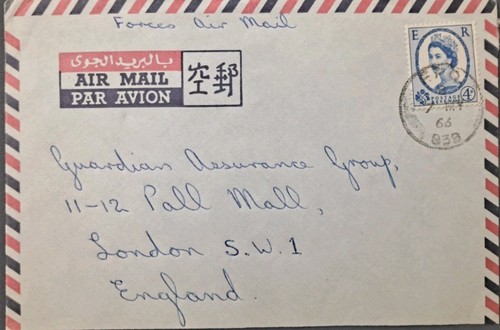 Forces Air Mail
بالبريد الجوى
AIR MAIL
PAR AVION
空郵
E R
POSTAGE
4D
66
Guardian Assurance Group,
11-12 Pall Mall,
London S.W.1
England.